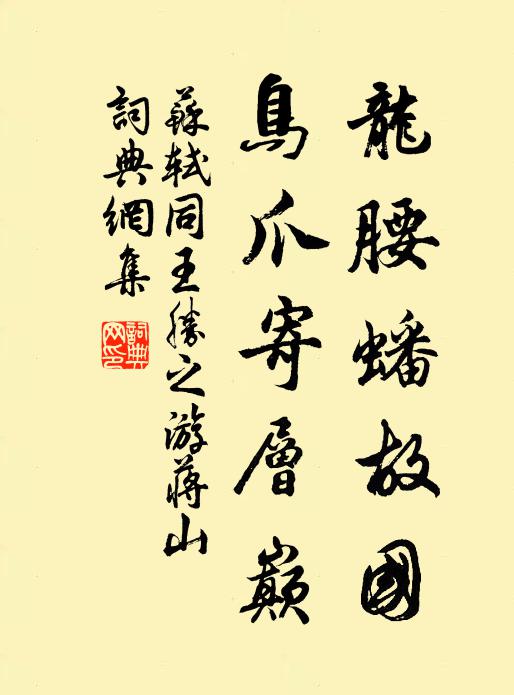 龍腰蟠故國
鳥爪寄層巔
蘇軾同王勝之游蔣山
詞典網集
詞典網印